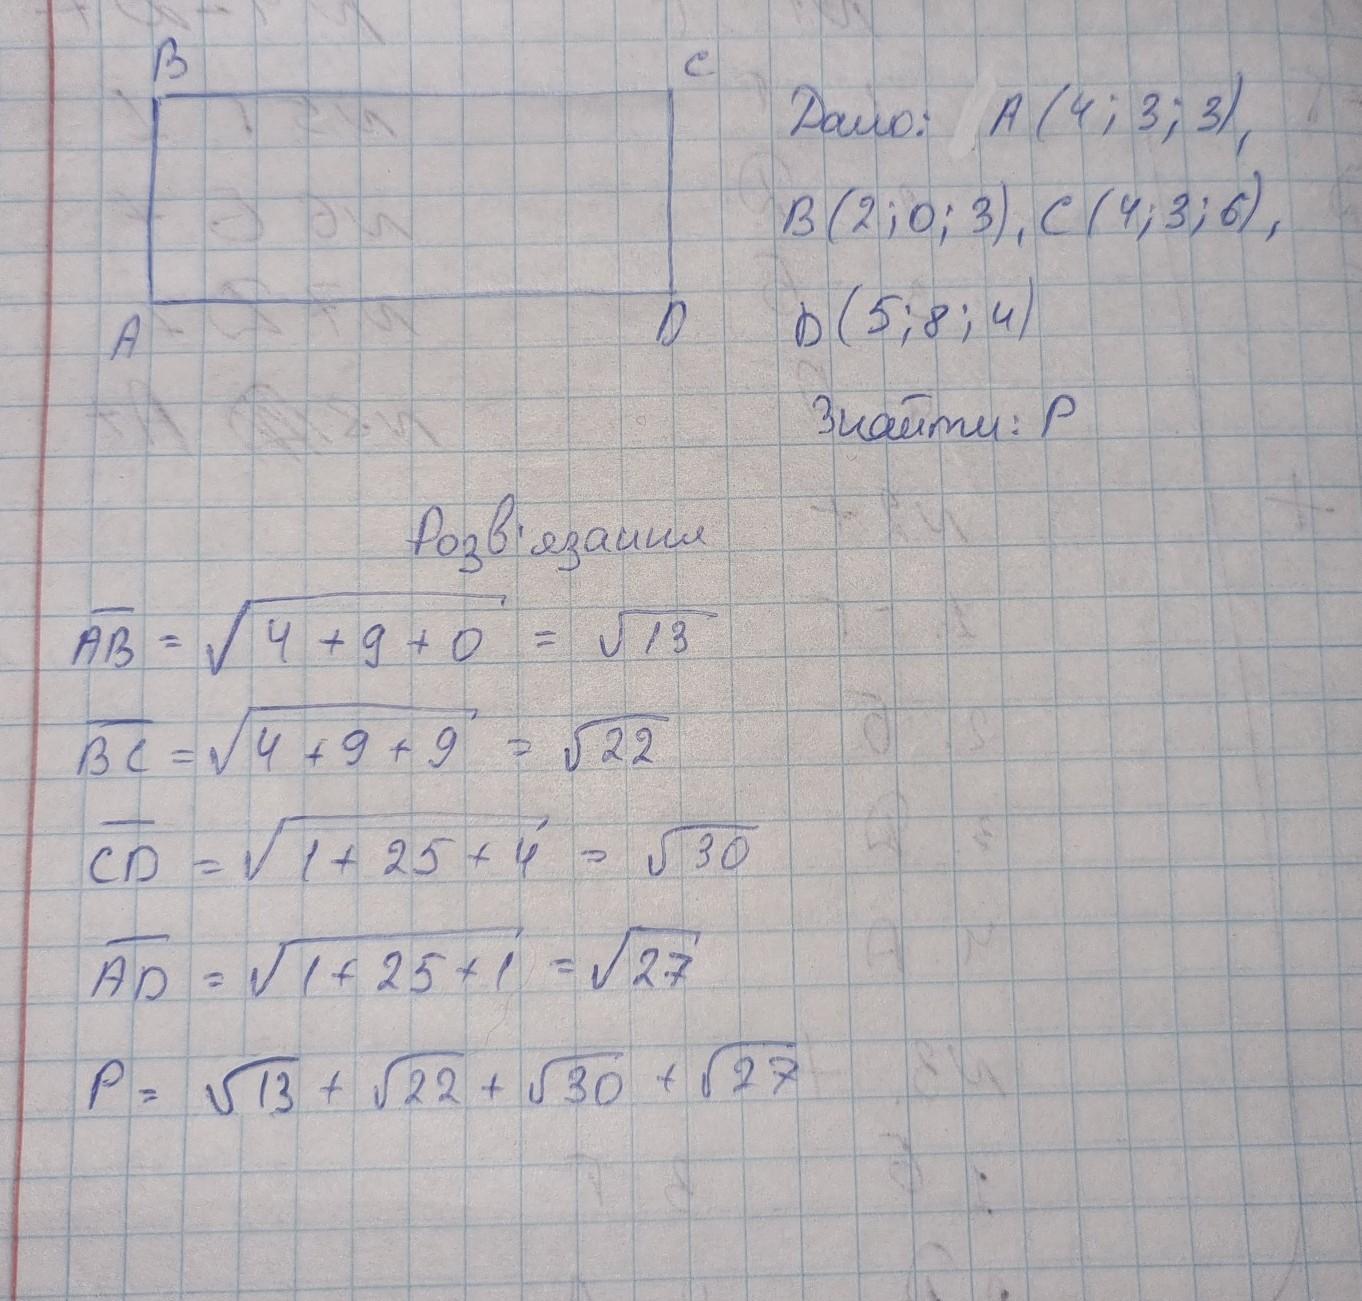 B C
A D
Дано: A (4; 3; 3),
B (2; 0; 3), C (4; 3; 6),
D (5; 8; 4)
Знайти: P
Розв'язання
AB = √4 + 9 + 0 = √13
BC = √4 + 9 + 9 = √22
CD = √1 + 25 + 4 = √30
AD = √1 + 25 + 1 = √27
P = √13 + √22 + √30 + √27